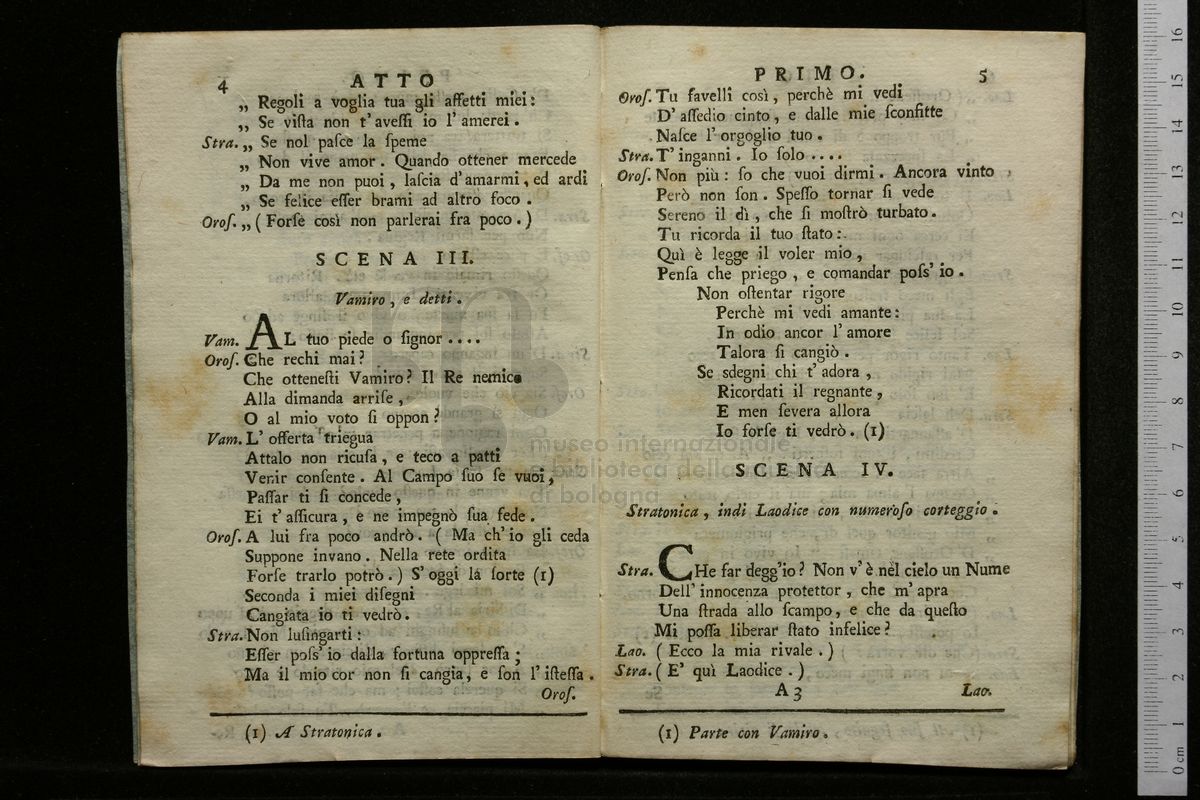 4 ATTO
„ Regoli a voglia tua gli affetti miei:
„ Se viſta non t'aveſſi io l'amerei.
Stra. „ Se nol paſce la ſpeme
„ Non vive amor. Quando ottener mercede
„ Da me non puoi, laſcia d'amarmi, ed ardi
„ Se felice eſſer brami ad altro foco.
Oroſ. „ (Forſe così non parlerai fra poco.)
SCENA III.
Vamiro, e detti.
Vam. AL tuo piede o ſignor....
Oroſ. Che rechi mai?
Che otteneſti Vamiro? Il Re nemico
Alla dimanda arriſe,
O al mio voto ſi oppon?
Vam. L' offerta triegua
Attalo non ricuſa, e teco a patti
Venir conſente. Al Campo ſuo ſe vuoi,
Paſſar ti ſi concede,
Ei t' aſſicura, e ne impegnò ſua fede.
Oroſ. A lui fra poco andrò. (Ma ch'io gli ceda
Suppone invano. Nella rete ordita
Forſe trarlo potrò.) S'oggi la ſorte (1)
Seconda i miei diſegni
Cangiata io ti vedrò.
Stra. Non luſingarti:
Eſſer poſs'io dalla fortuna oppreſſa;
Ma il mio cor non ſi cangia, e ſon l'iſteſſa.
Oroſ.
(1) A Stratonica.
PRIMO. 5
Oroſ. Tu favelli così, perchè mi vedi
D' aſſedio cinto, e dalle mie ſconfitte
Naſce l'orgoglio tuo.
Stra. T'inganni. Io ſolo....
Oroſ. Non più: ſo che vuoi dirmi. Ancora vinto
Però non ſon. Speſſo tornar ſi vede
Sereno il dì, che ſi moſtrò turbato.
Tu ricorda il tuo ſtato:
Quì è legge il voler mio,
Penſa che priego, e comandar poſs'io.
Non oſtentar rigore
Perchè mi vedi amante:
In odio ancor l'amore
Talora ſi cangiò.
Se sdegni chi t'adora,
Ricordati il regnante,
E men ſevera allora
Io forſe ti vedrò. (1)
SCENA IV.
Stratonica, indi Laodice con numeroſo corteggio.
Stra. CHe far degg'io? Non v'è nel cielo un Nume
Dell'innocenza protettor, che m'apra
Una ſtrada allo ſcampo, e che da queſto
Mi poſſa liberar ſtato infelice?
Lao. (Ecco la mia rivale.)
Stra. (E' quì Laodice.)
A 3 Lao.
(1) Parte con Vamiro.
museo internazionale
e biblioteca della
di bologna
0 cm 1 2 3 4 5 6 7 8 9 10 11 12 13 14 15 16